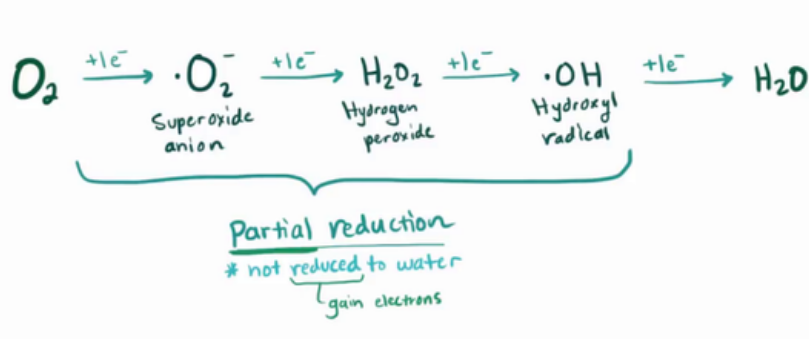 O₂ +1e⁻ ·O₂⁻ +1e⁻ H₂O₂ +1e⁻ ·OH +1e⁻ H₂O
Superoxide anion
Hydrogen peroxide
Hydroxyl radical
Partial reduction
* not reduced to water
gain electrons